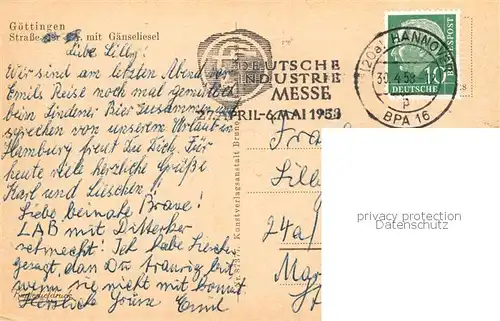 Göttingen
Straße der mit Gänseliesel
Liebe Lilly!
Wir sind am letzten Abend der
Emils Reise noch mal gemütlich
beim Lindener Bier zusammen und
sprechen von unserem Urlaub in
Hamburg freut Du Dich. Für
heute viele herzliche Grüße
Karl und Lieschen!
Liebe beinahe Braue!
LAB mit Dittscher
schmeckt! Ich habe Lieschen
gesagt, dan Du traurig bist
wenn sie nicht mit kommt
Herzlich Grüße Emil
Kunstverlagsanstalt
DEUTSCHE
INDUSTRIE
MESSE
27.APRIL-6.MAI 1958
(20a) HANNOVER
30.4.58
p
BPA 16
10
DEUTSCHE
BUNDESPOST
Lilly
24a
privacy protection
Datenschutz